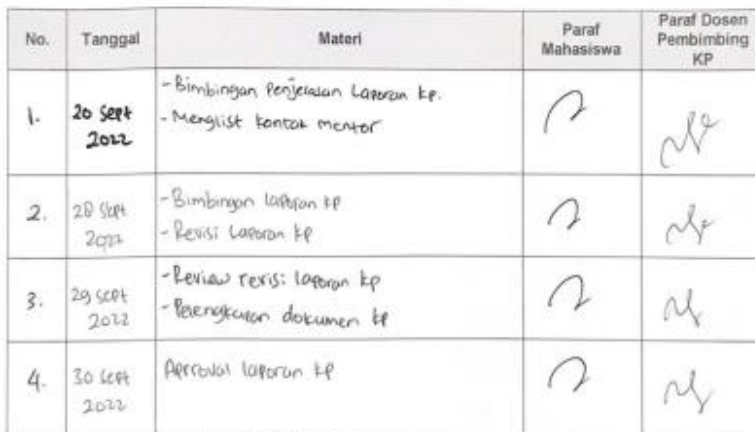 No. Tanggal Materi Paraf Mahasiswa Paraf Dosen Pembimbing KP
1. 20 Sept 2022
- Bimbingan Penjelasan Laporan KP.
- Menglist kontak mentor
2. 28 Sept 2022
- Bimbingan laporan KP
- Revisi Laporan KP
3. 29 Sept 2022
- Review revisi laporan KP
- Pelengkapan dokumen KP
4. 30 Sept 2022
Approval laporan KP